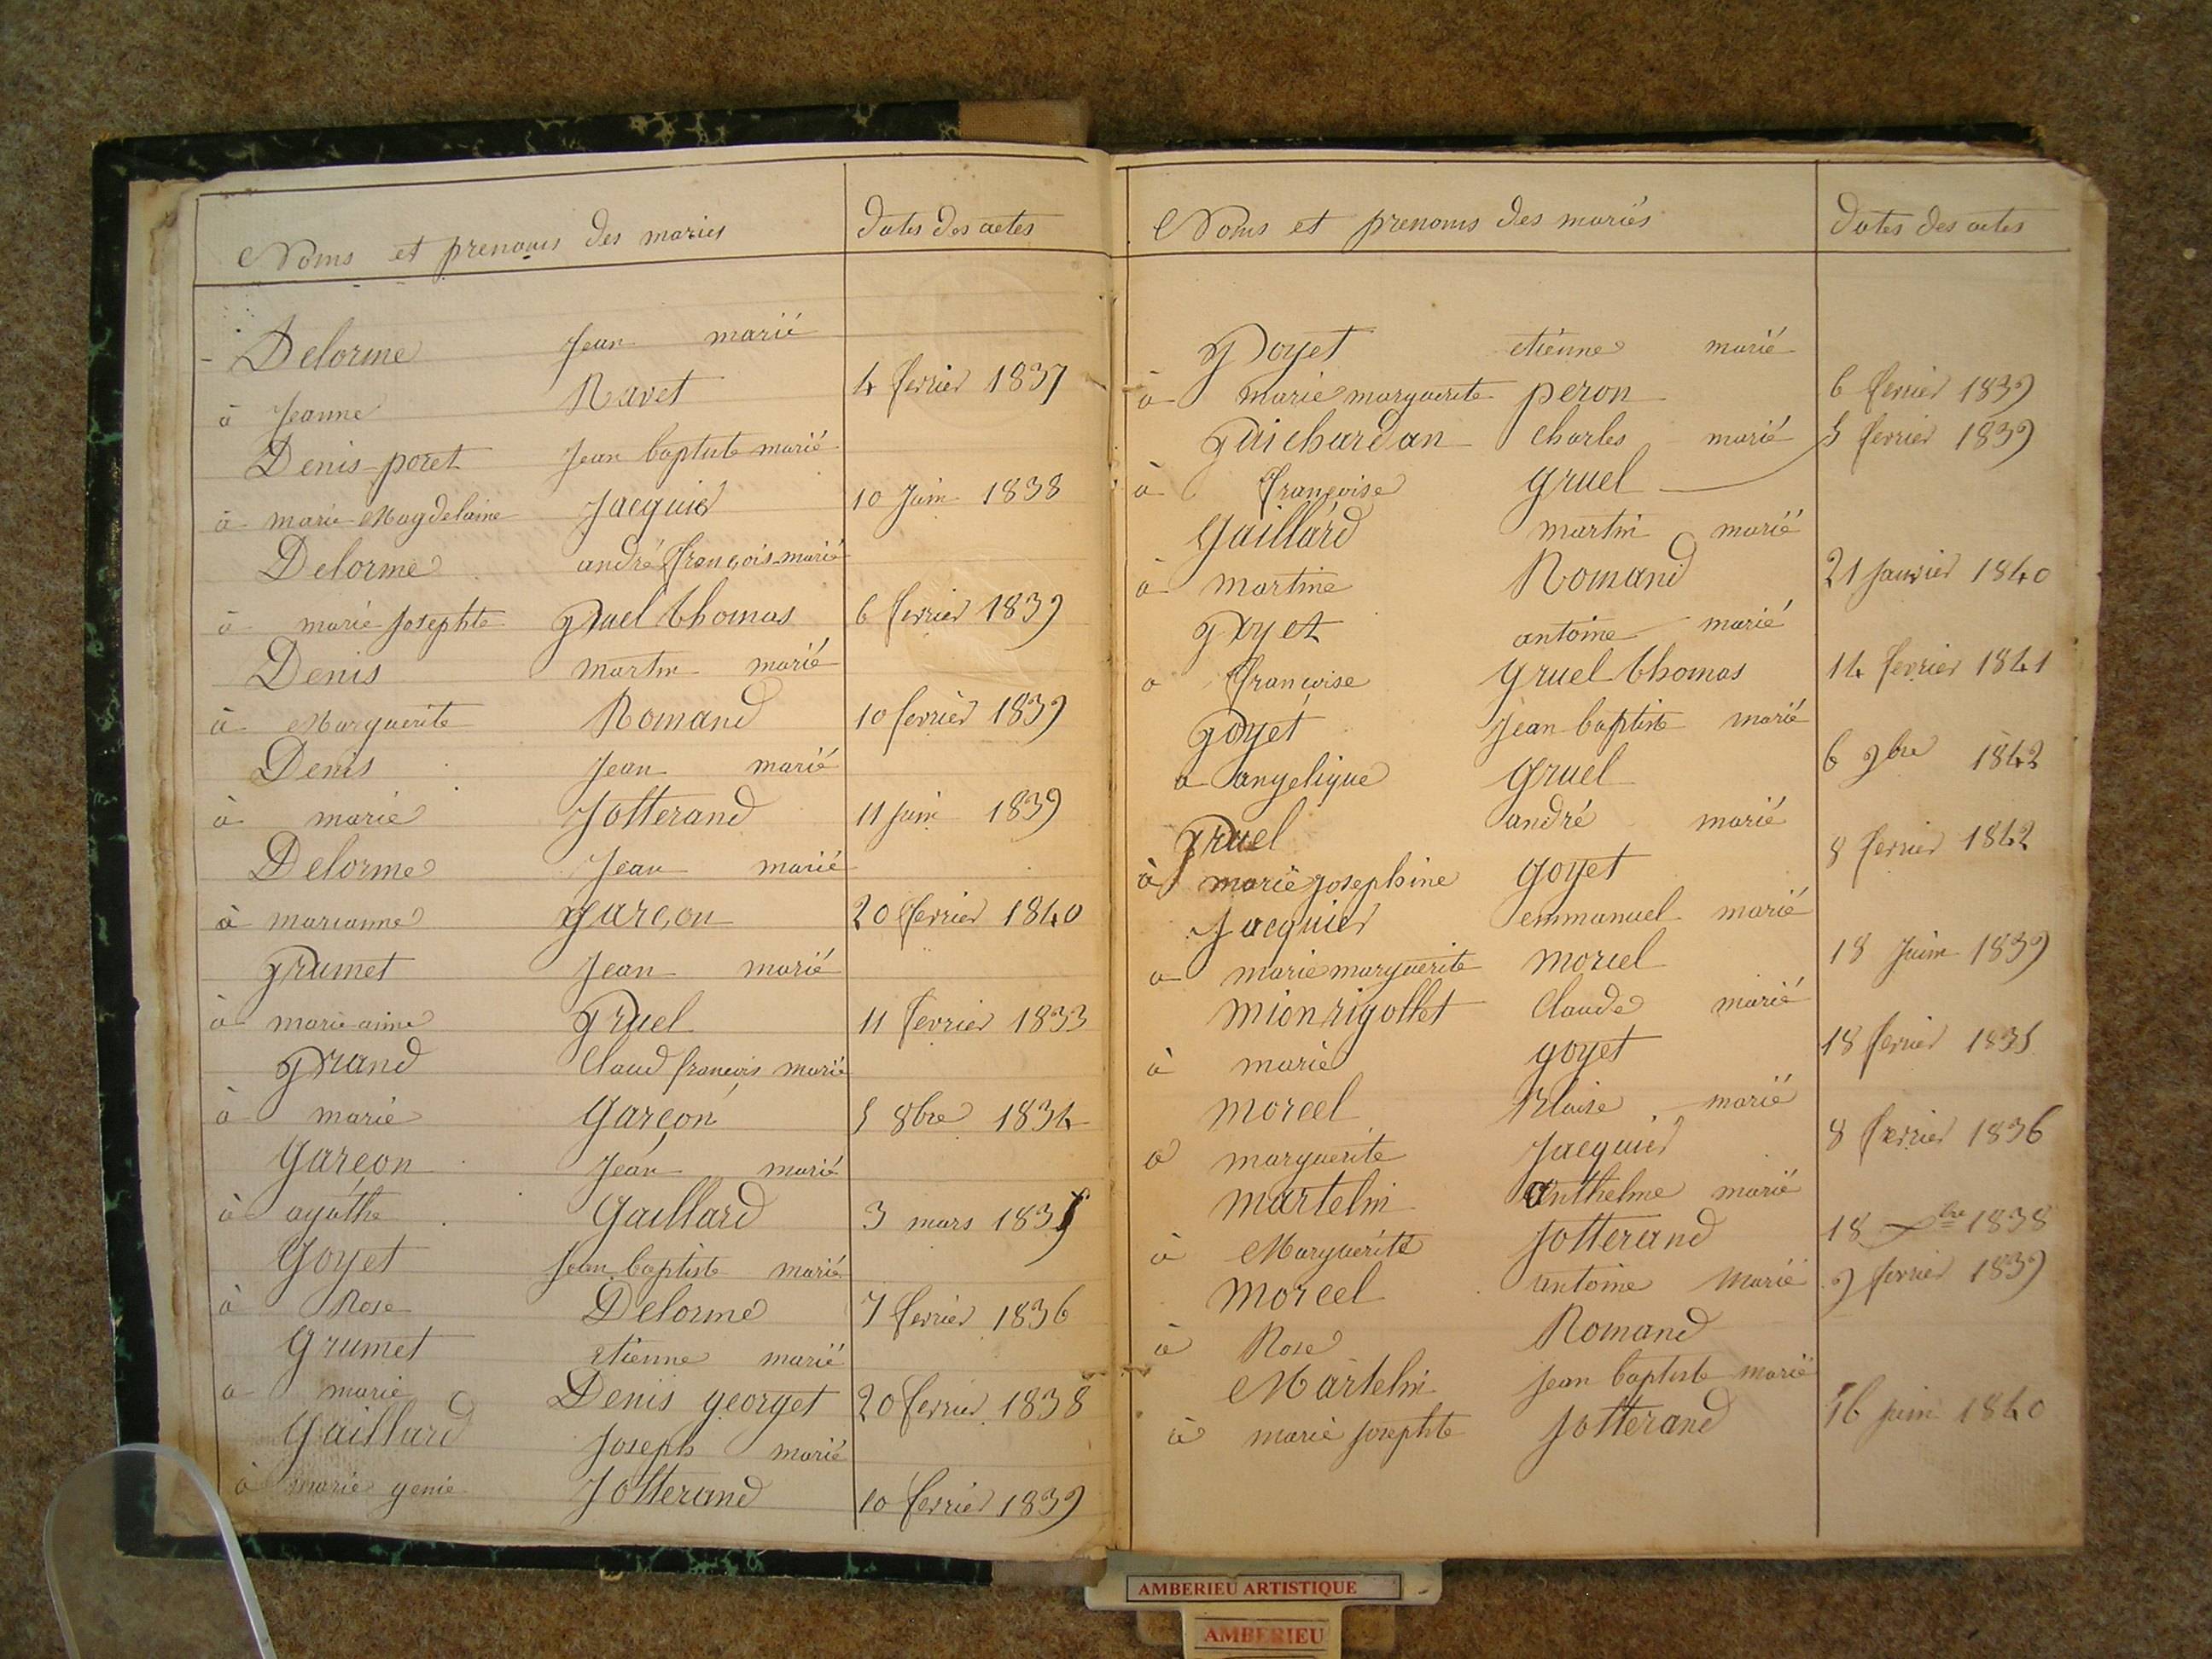 Noms et prenoms des mariés
dates des actes
Delorme Jean marié
à Jeanne Ravet 4 fevrier 1837
Denis-poret Jean baptiste marié
à marie Magdelaine Jacquier 10 Juin 1838
Delorme andré françois marié
à marie josephte gruel thomas 6 fevrier 1839
Denis martin marié
à Marguerite Romand 10 fevrier 1839
Denis Jean marié
à marie Jotterand 11 juin 1839
Delorme Jean marié
à marianne garçon 20 fevrier 1840
grumet Jean marié
à marie aime gruel 11 fevrier 1833
grand Claud françois marié
à marie garçon 5 8bre 1834
garçon Jean marié
à agathe gaillard 3 mars 1835
goyet Jean baptiste marié
à Rose Delorme 7 fevrier 1836
grumet etienne marié
a marie Denis georget 20 fevrier 1838
gaillard Joseph marié
à marie genie Jotterand 10 fevrier 1839
Noms et prenoms des mariés
dates des actes
goyet etienne marié
à marie marguerite peron 6 fevrier 1839
guichardan Charles marié 5 fevrier 1839
à françoise gruel
gaillard martin marié
à martine Romand 21 janvier 1840
goyet antoine marié
a françoise gruel thomas 14 fevrier 1841
goyet Jean baptiste marié
a angelique gruel 6 9bre 1842
gruel andré marié
à marie josephine goyet 8 fevrier 1842
Jacquier emmanuel marié
a marie marguerite morcel 18 Juin 1839
mion rigollet Claude marié
à marie goyet 18 fevrier 1835
morcel Blaise marié
a marguerite Jacquier 8 fevrier 1836
martelin anthelme marié
à Marguerite Jotterand 18 xbre 1838
morcel antoine marié 9 fevrier 1839
à Rose Romand
Martelin Jean baptiste marié
à marie josephte Jotterand 16 juin 1840
AMBERIEU ARTISTIQUE
AMBERIEU